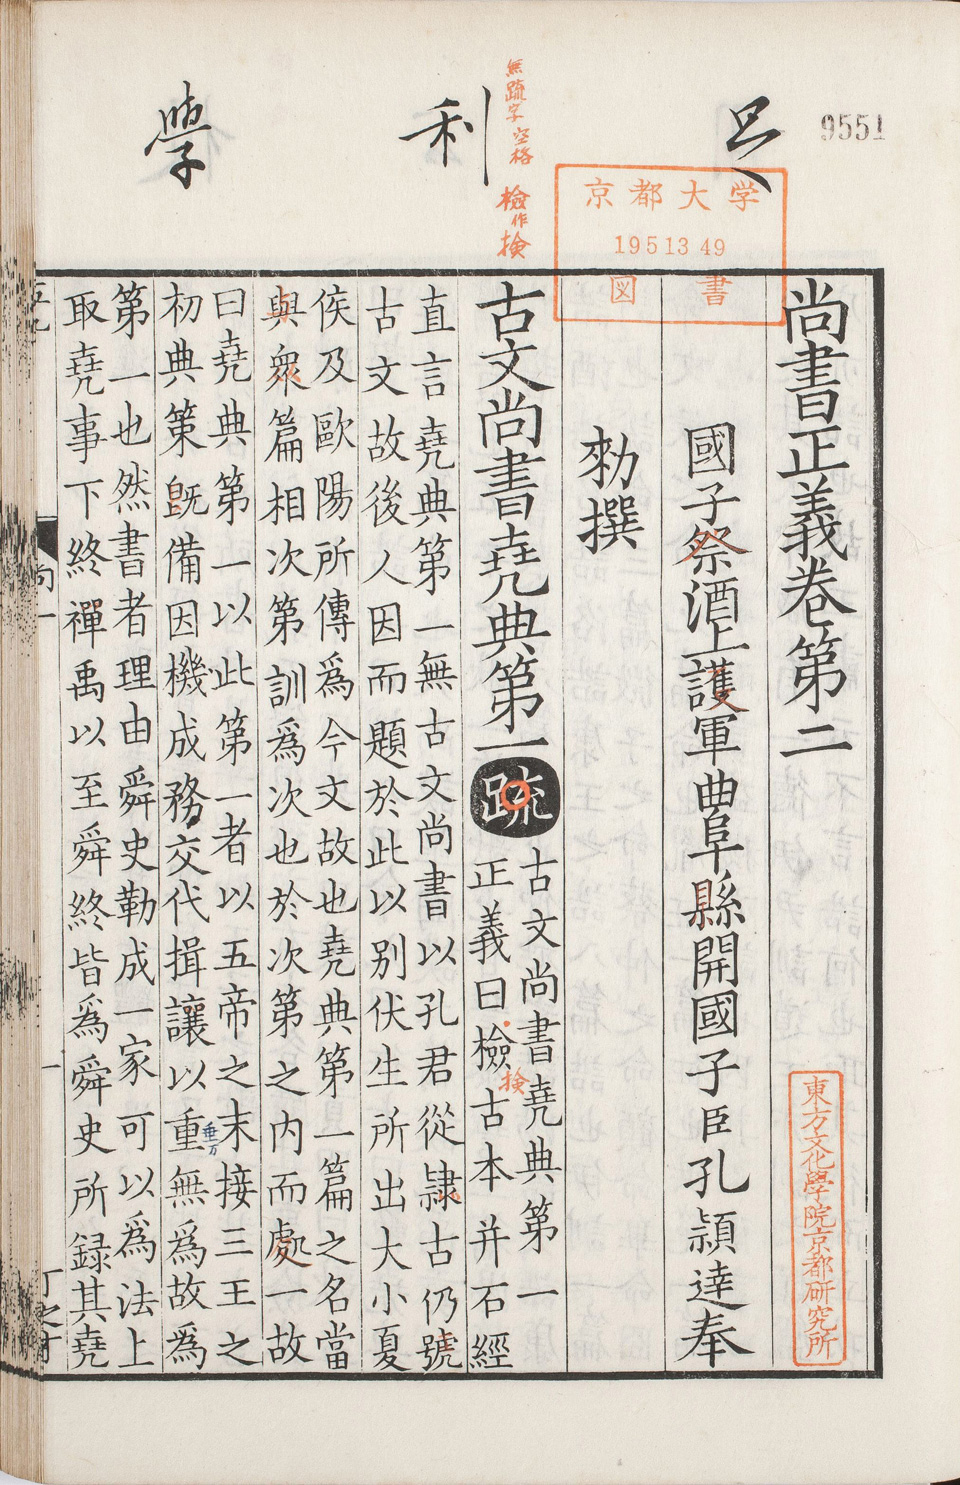 足利學
9551
無疏字空格
檢作検
京都大学
1951349
図書
尚書正義卷第二
國子祭酒上護軍曲阜縣開國子臣孔穎達奉
勑撰
古文尚書堯典第一疏
古文尚書堯典第一
正義曰檢古本并石經
検
直言堯典第一無古文尚書以孔君從隸古仍號
古文故後人因而題於此以别伏生所出大小夏
侯及歐陽所傳爲今文故也堯典第一篇之名當
與衆篇相次第訓爲次也於次第之内而處一故
曰堯典第一以此第一者以五帝之末接三王之
初典策旣備因機成務交代揖讓以重無爲故爲
垂万
第一也然書者理由舜史勒成一家可以爲法上
取堯事下終禪禹以至舜終皆爲舜史所録其堯
尚一
一
東方文化學院京都研究所